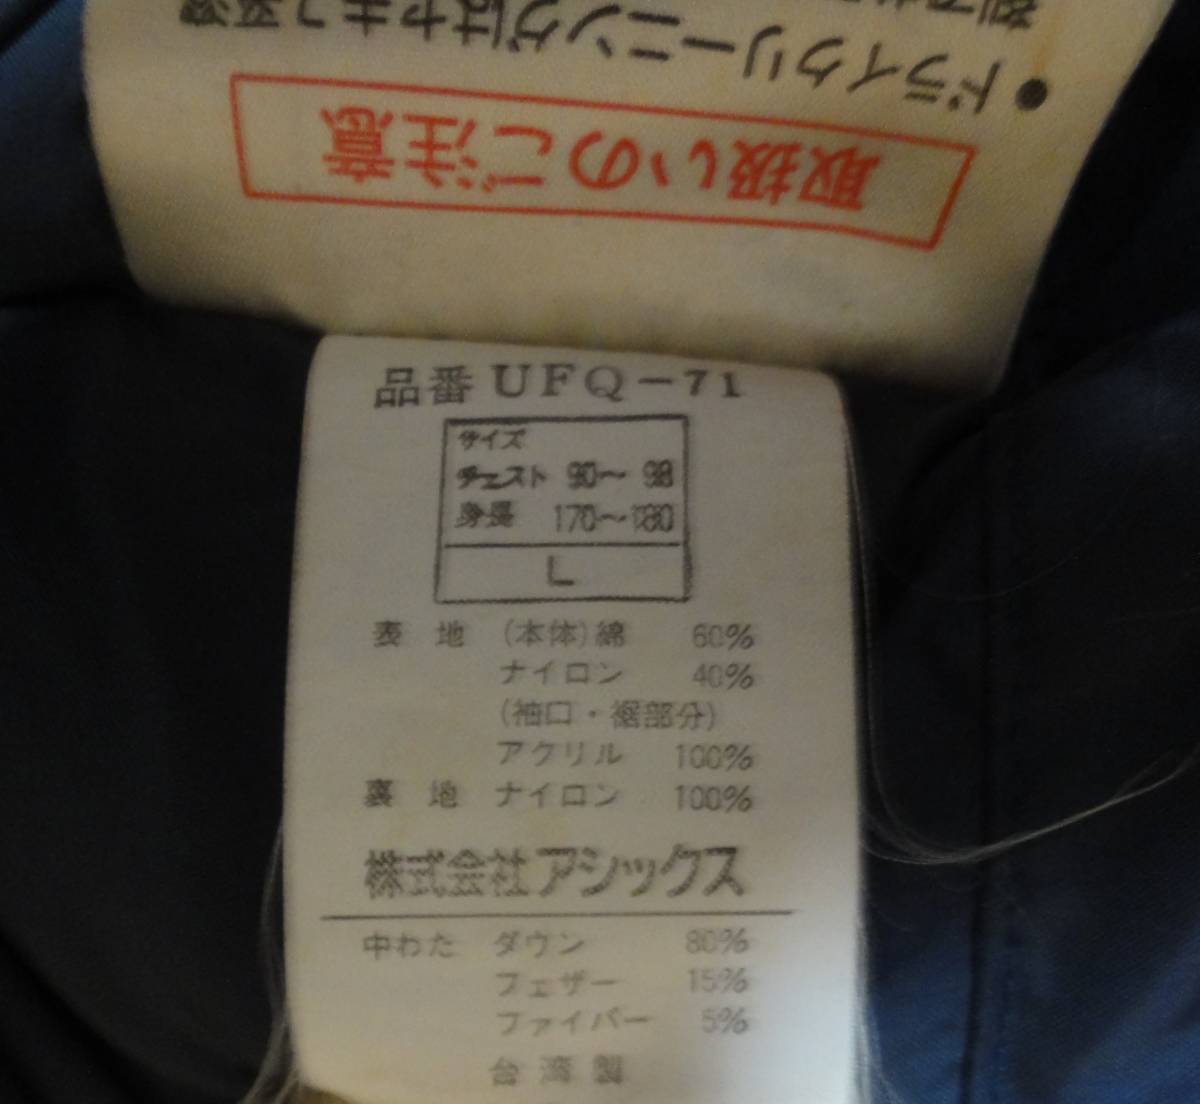 取扱いのご注意
●ドライクリーニングはヤキュフ
品番 UFQ-71
サイズ
チェスト 90～ 98
身長 170～180
L
表 地 (本体)綿 60%
ナイロン 40%
(袖口・裾部分)
アクリル 100%
裏 地 ナイロン 100%
株式会社アシックス
中わた ダウン 80%
フェザー 15%
ファイバー 5%
台湾製